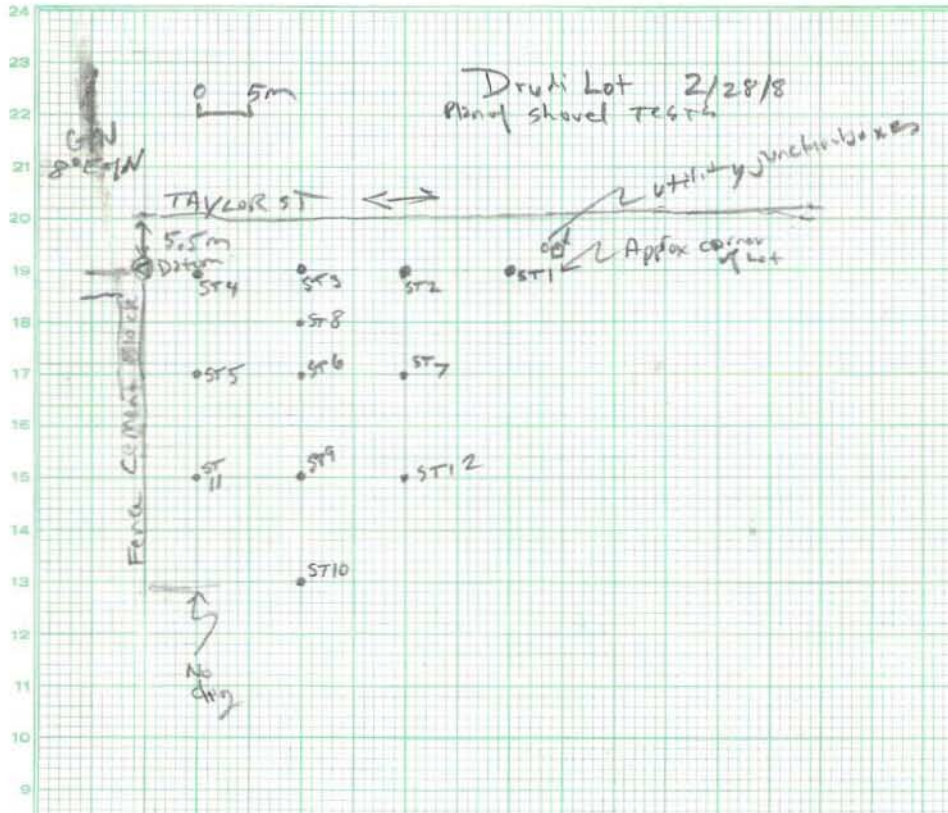 24
23
22
21
20
19
18
17
16
15
14
13
12
11
10
9
0 5m
Drudi Lot 2/28/8
Plan of shovel TESTS
8° E of N
utility junction boxes
TAYLOR ST
5.5m
Datum
Approx corner
of Lot
ST4
ST3
ST2
ST1
ST8
ST5
ST6
ST7
ST
11
ST9
ST12
ST10
Fence Cement Block
No